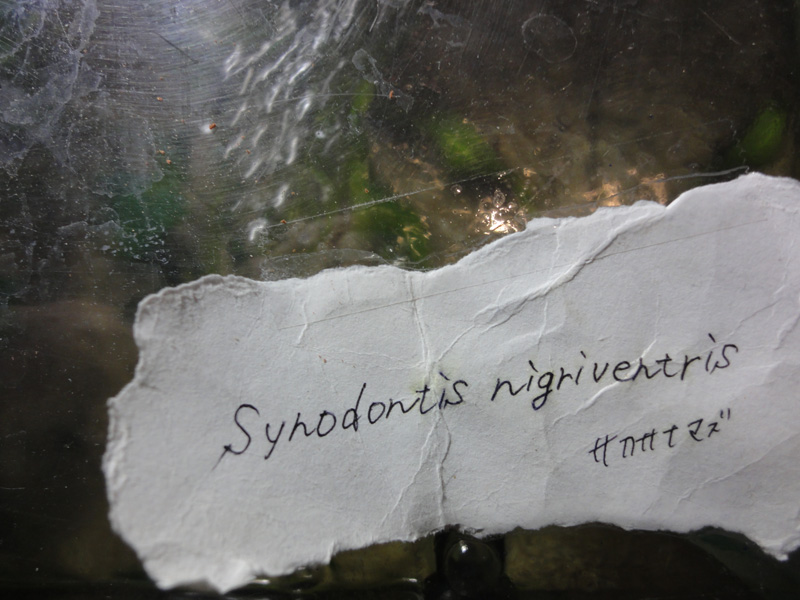 Synodontis nigriventris
サカサナマズ